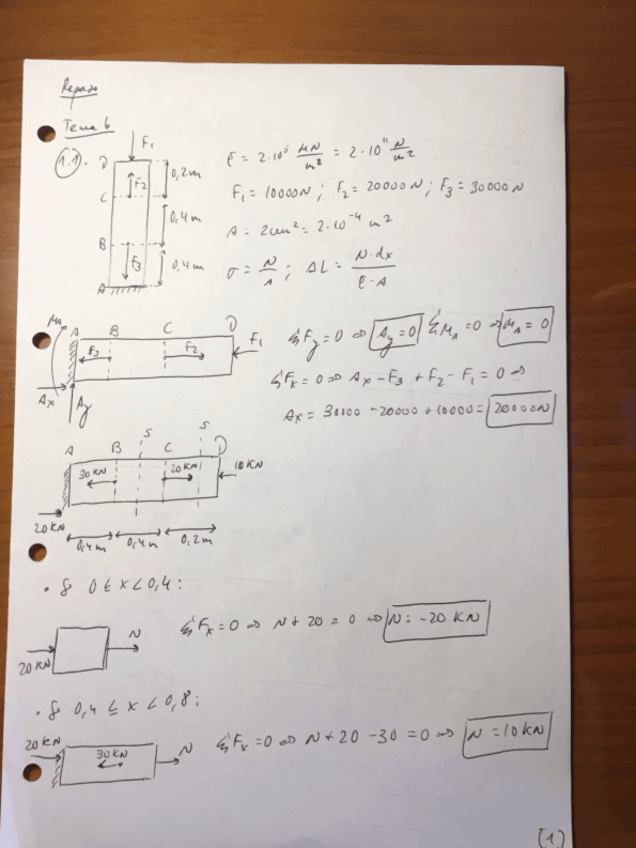 Repaso
Tema 6
1.1.
F1
D
F2
0,2m
C
0,4m
B
F3
0,4m
A
E = 2·10⁵ MN/m² = 2·10¹¹ N/m²
F1 = 10000N ; F2 = 20000N ; F3 = 30000N
A = 2cm² = 2·10⁻⁴ m²
σ = N/A ; ΔL = N·dx/E·A
MA A B C D
F3 F2 F1
Ax Ay
ΣFy = 0 ⇒ Ay = 0 ΣMA = 0 ⇒ MA = 0
ΣFx = 0 ⇒ Ax - F3 + F2 - F1 = 0 ⇒
Ax = 30000 - 20000 + 10000 = 20000N
S S
A B C D
30KN 20KN 10KN
20KN
0,4m 0,4m 0,2m
0 ≤ x < 0,4:
N
20KN
ΣFx = 0 ⇒ N + 20 = 0 ⇒ N = -20 KN
0,4 ≤ x < 0,8:
20KN 30KN N
ΣFx = 0 ⇒ N + 20 - 30 = 0 ⇒ N = 10KN
(1)